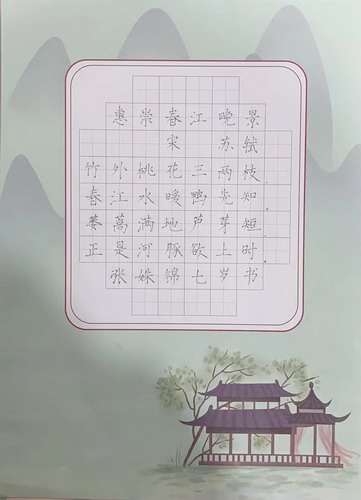 惠崇春江晚景
宋 苏轼
竹外桃花三两枝
春江水暖鸭先知
蒌蒿满地芦芽短
正是河豚欲上时
张姝锦七岁书